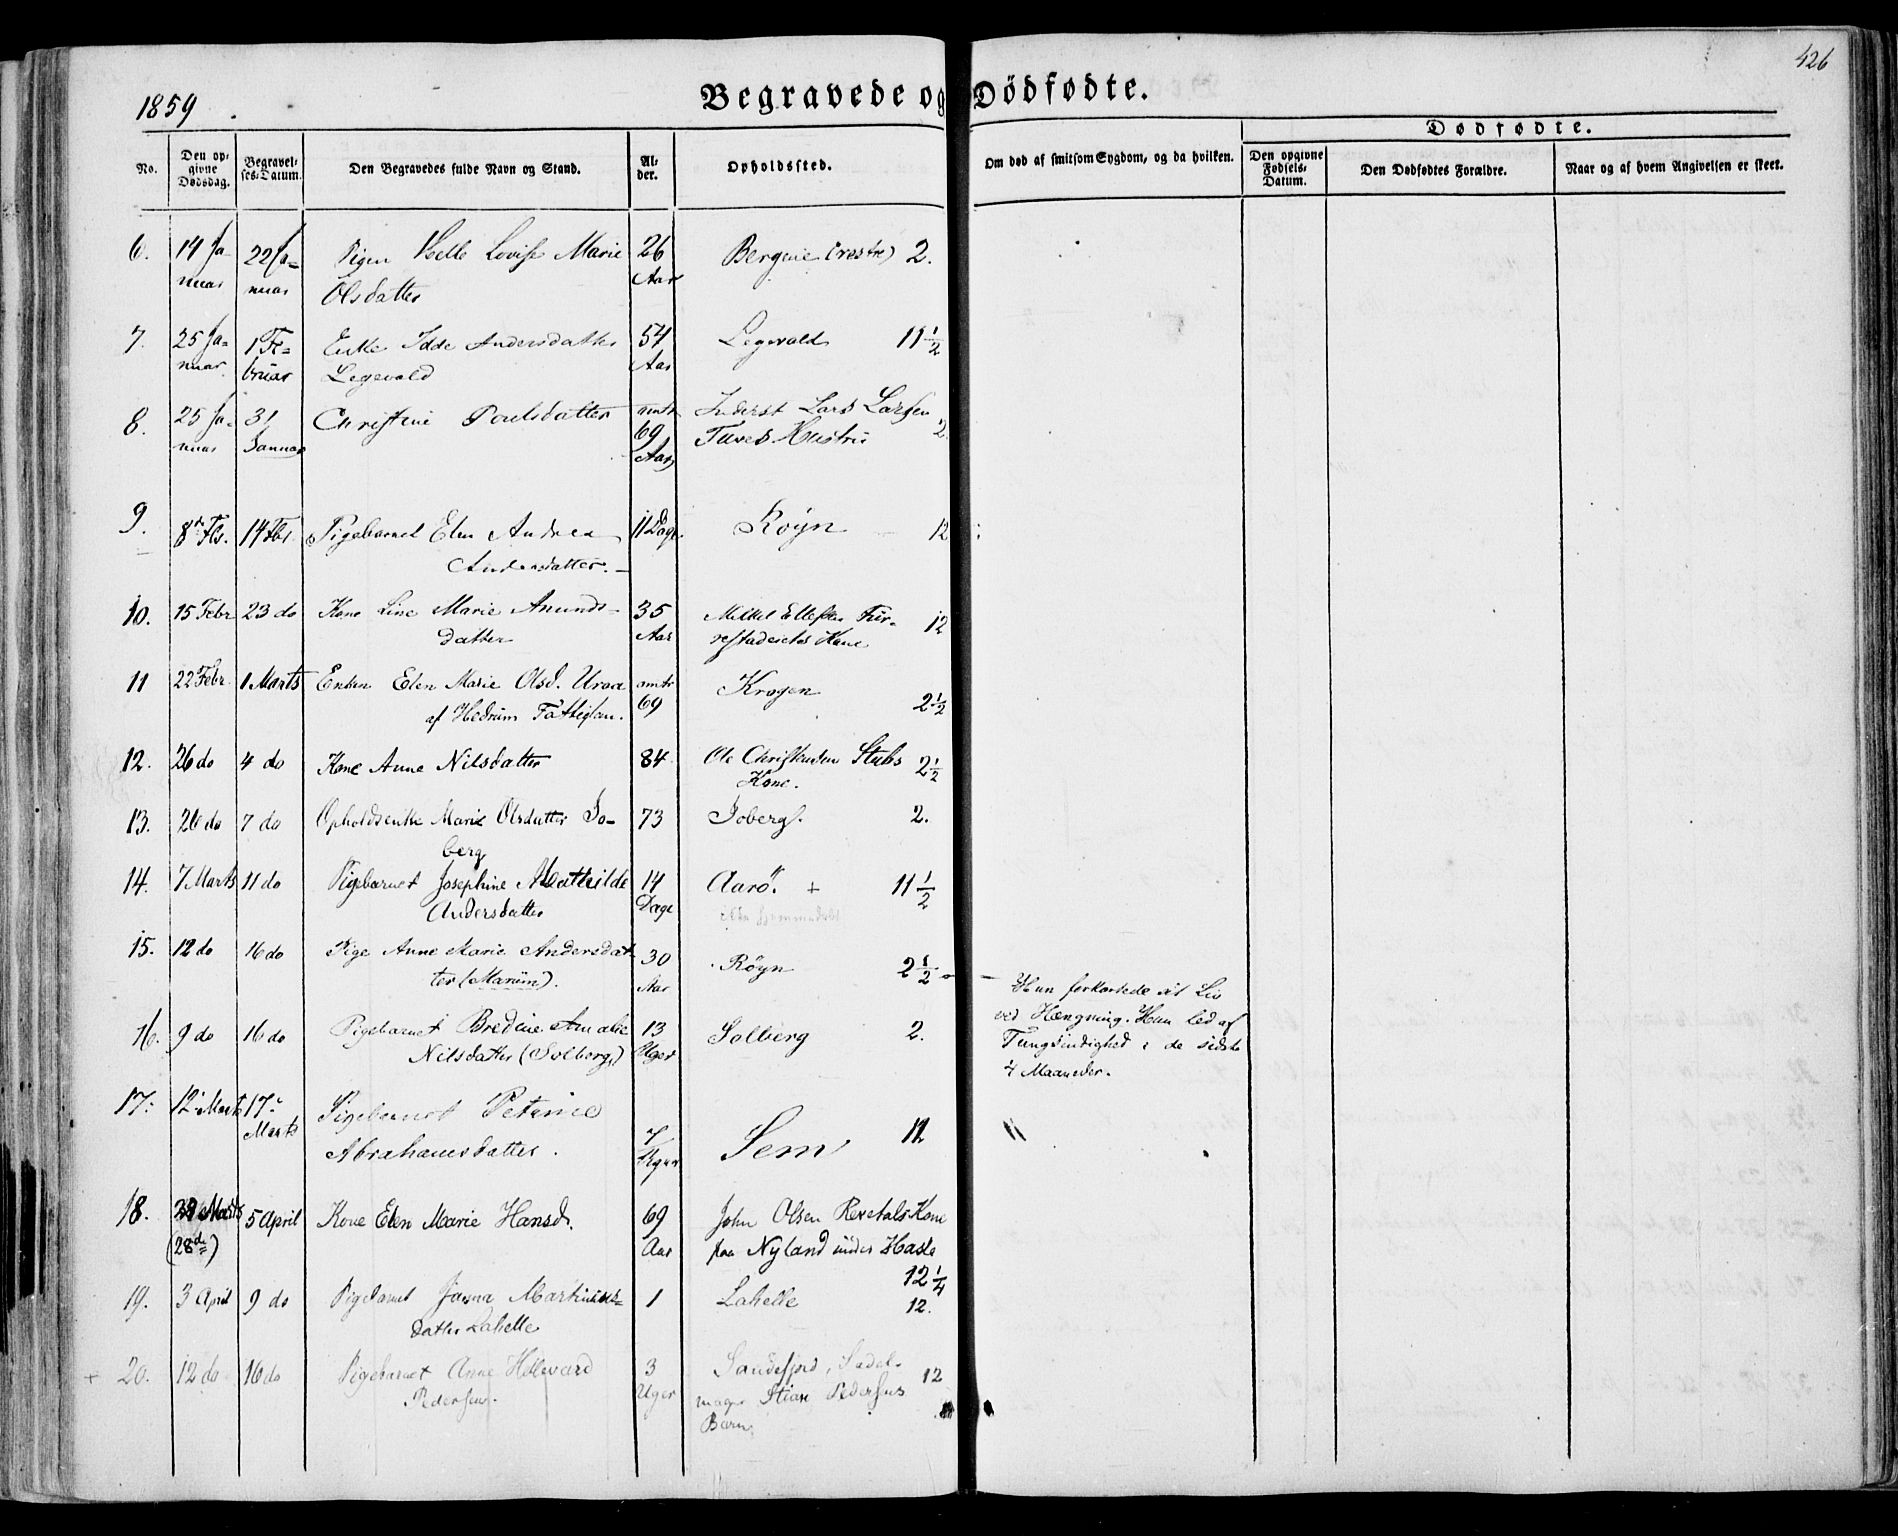 426
1859.
Begravede og Dödfødte.
Dødfødte.
No.
Den opgivne Dødsdag.
Begravelses-Datum.
Den Begravedes fulde Navn og Stand.
Alder.
Opholdssted.
Om død af smitsom Sygdom, og da hvilken.
Den opgivne Fødsels-Datum.
Den Dødfødtes Forældre.
Naar og af hvem Angivelsen er skeet.
6. 14 Ja- 22 Ja- Pigen Helle Lovise Marie 26 Bergene (vestre) 2.
nuar nuar Olsdatter Aar
7. 25 Ja- 1 Fe- Enke Idde Andersdatter 54 Legevald 11 1/2
nuar bruar Legevald Aar
8. 25 Ja- 31 Christine Poulsdatter omtr Inderst Lars Larsen 2
nuar Januar 69 Aar Hustru
9. 8de Fbr. 14 Fbr. Pigebarnet Elen Andrea 11 Dage Röyn 12
Andersdatter.
10. 15 Febr 23 do Kone Line Marie Anunds- 35 Mikkel Ellefsen 12
datter Aar Kone
11 22 Febr. 1 Marts Enken Elen Marie Olsd. omtr Krogen 2 1/2
af Hedrum 69
12. 26 do 4 do Kone Anne Nilsdatter 84 Ole Christensen Stubs 2 1/2
Kone.
13. 26 do 7 do Opholdsenke Marie Olsdatter Jo- 73 Joberg. 2.
berg
14. 7 Marts 11 do Pigebarnet Josephine Mathilde 14 Aarö. + 11 1/2
Andersdatter Dage
15. 12 do 16 do Pige Anne Marie Andersdat- 30 Röyn 2 1/2
ter (Marüm). Aar
Hun forkortede sit Liv
ved Hængning. Hun led af
Tungsindighed i de sidste
4 Maaneder.
16. 9 do 16 do Pigebarnet Bredine Amalie 13 Solberg 2.
Nilsdatter (Solberg) Uger
17. 12 Marts 17 Marts Pigebarnet Petrine 7 Sem 12
Abrahamsdatter. Uger
18. Marts 5 April Kone Elen Marie Hansd. 69 John Olsen Revetals Kone
(28de) Aar paa Nyland under Hasle
12 1/4
19. 3 April 9 do Pigebarnet Janna Martinius- 1 Lahelle 12.
datter Lahelle
+ 20. 12 do 16 do Pigebarnet Anne Hellevard 3 Sandefjord, Sadel- 12
Pedersen. Uger mager Stian Pedersens
Barn.